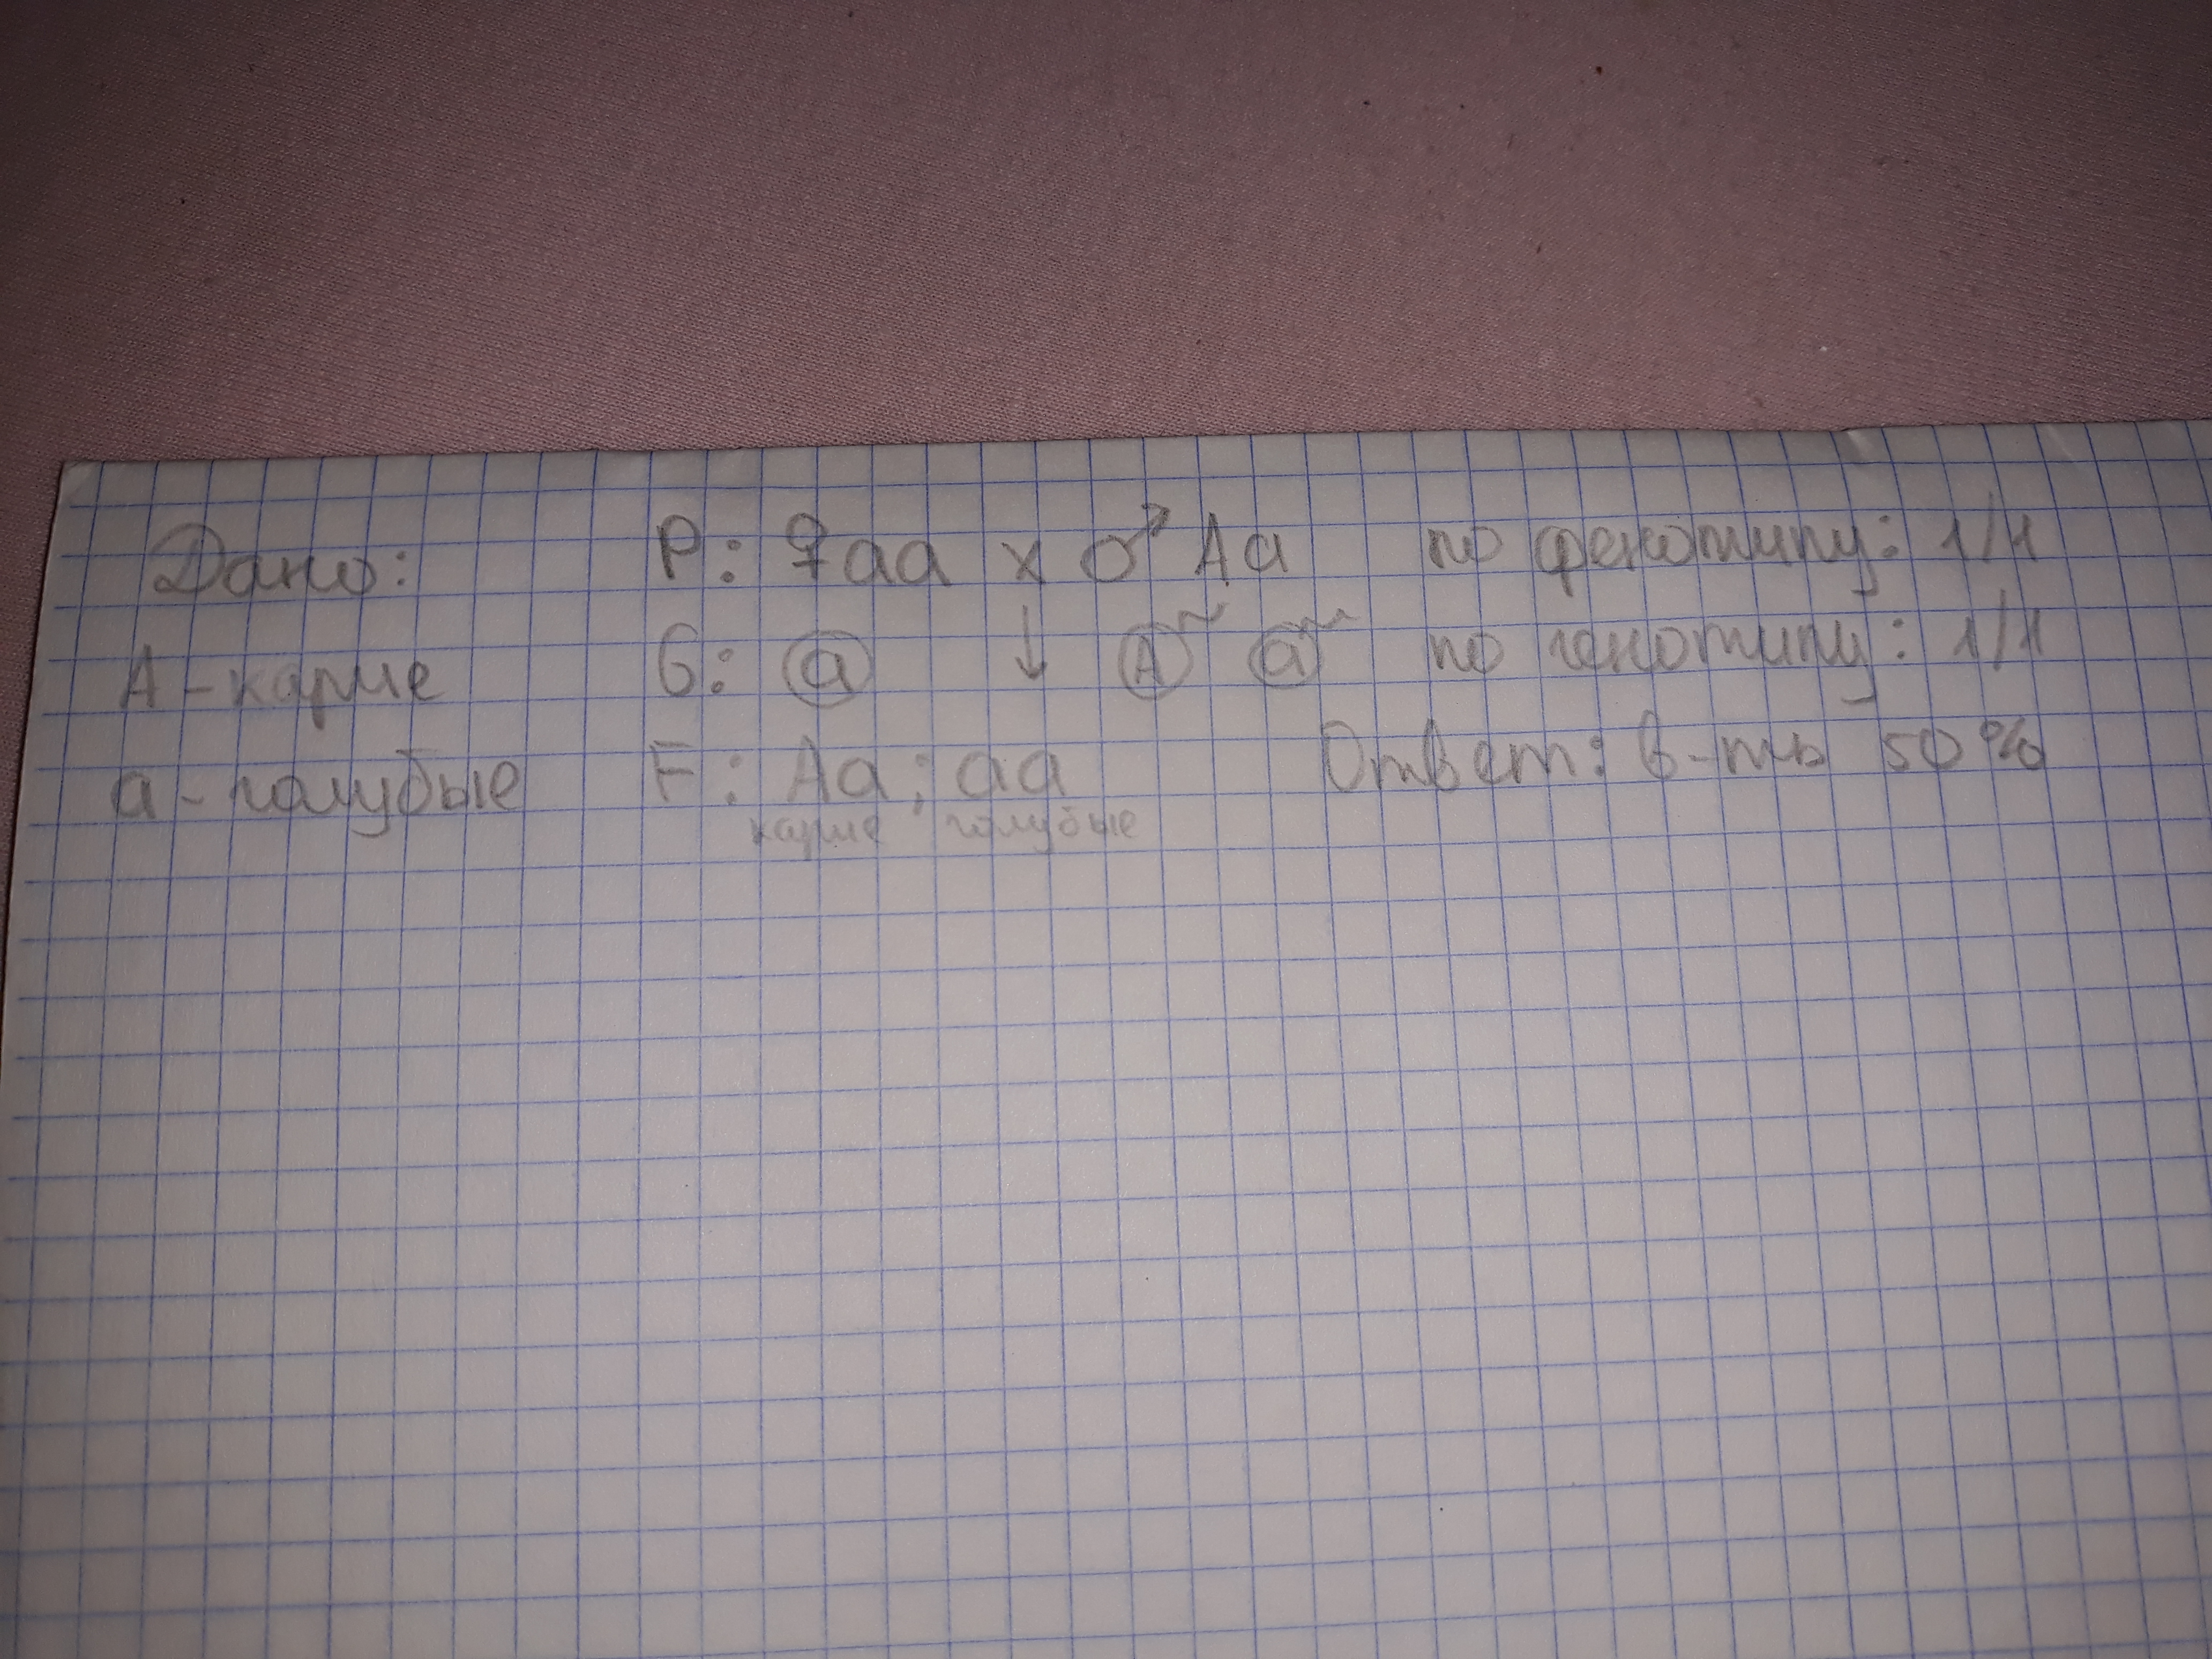 Дано:
А - карие
а - голубые
P: ♀aa x ♂Aa
G: a ↓ A~ a~
F: Aa; aa
карие голубые
по фенотипу: 1/1
по генотипу: 1/1
Ответ: в-ть 50%